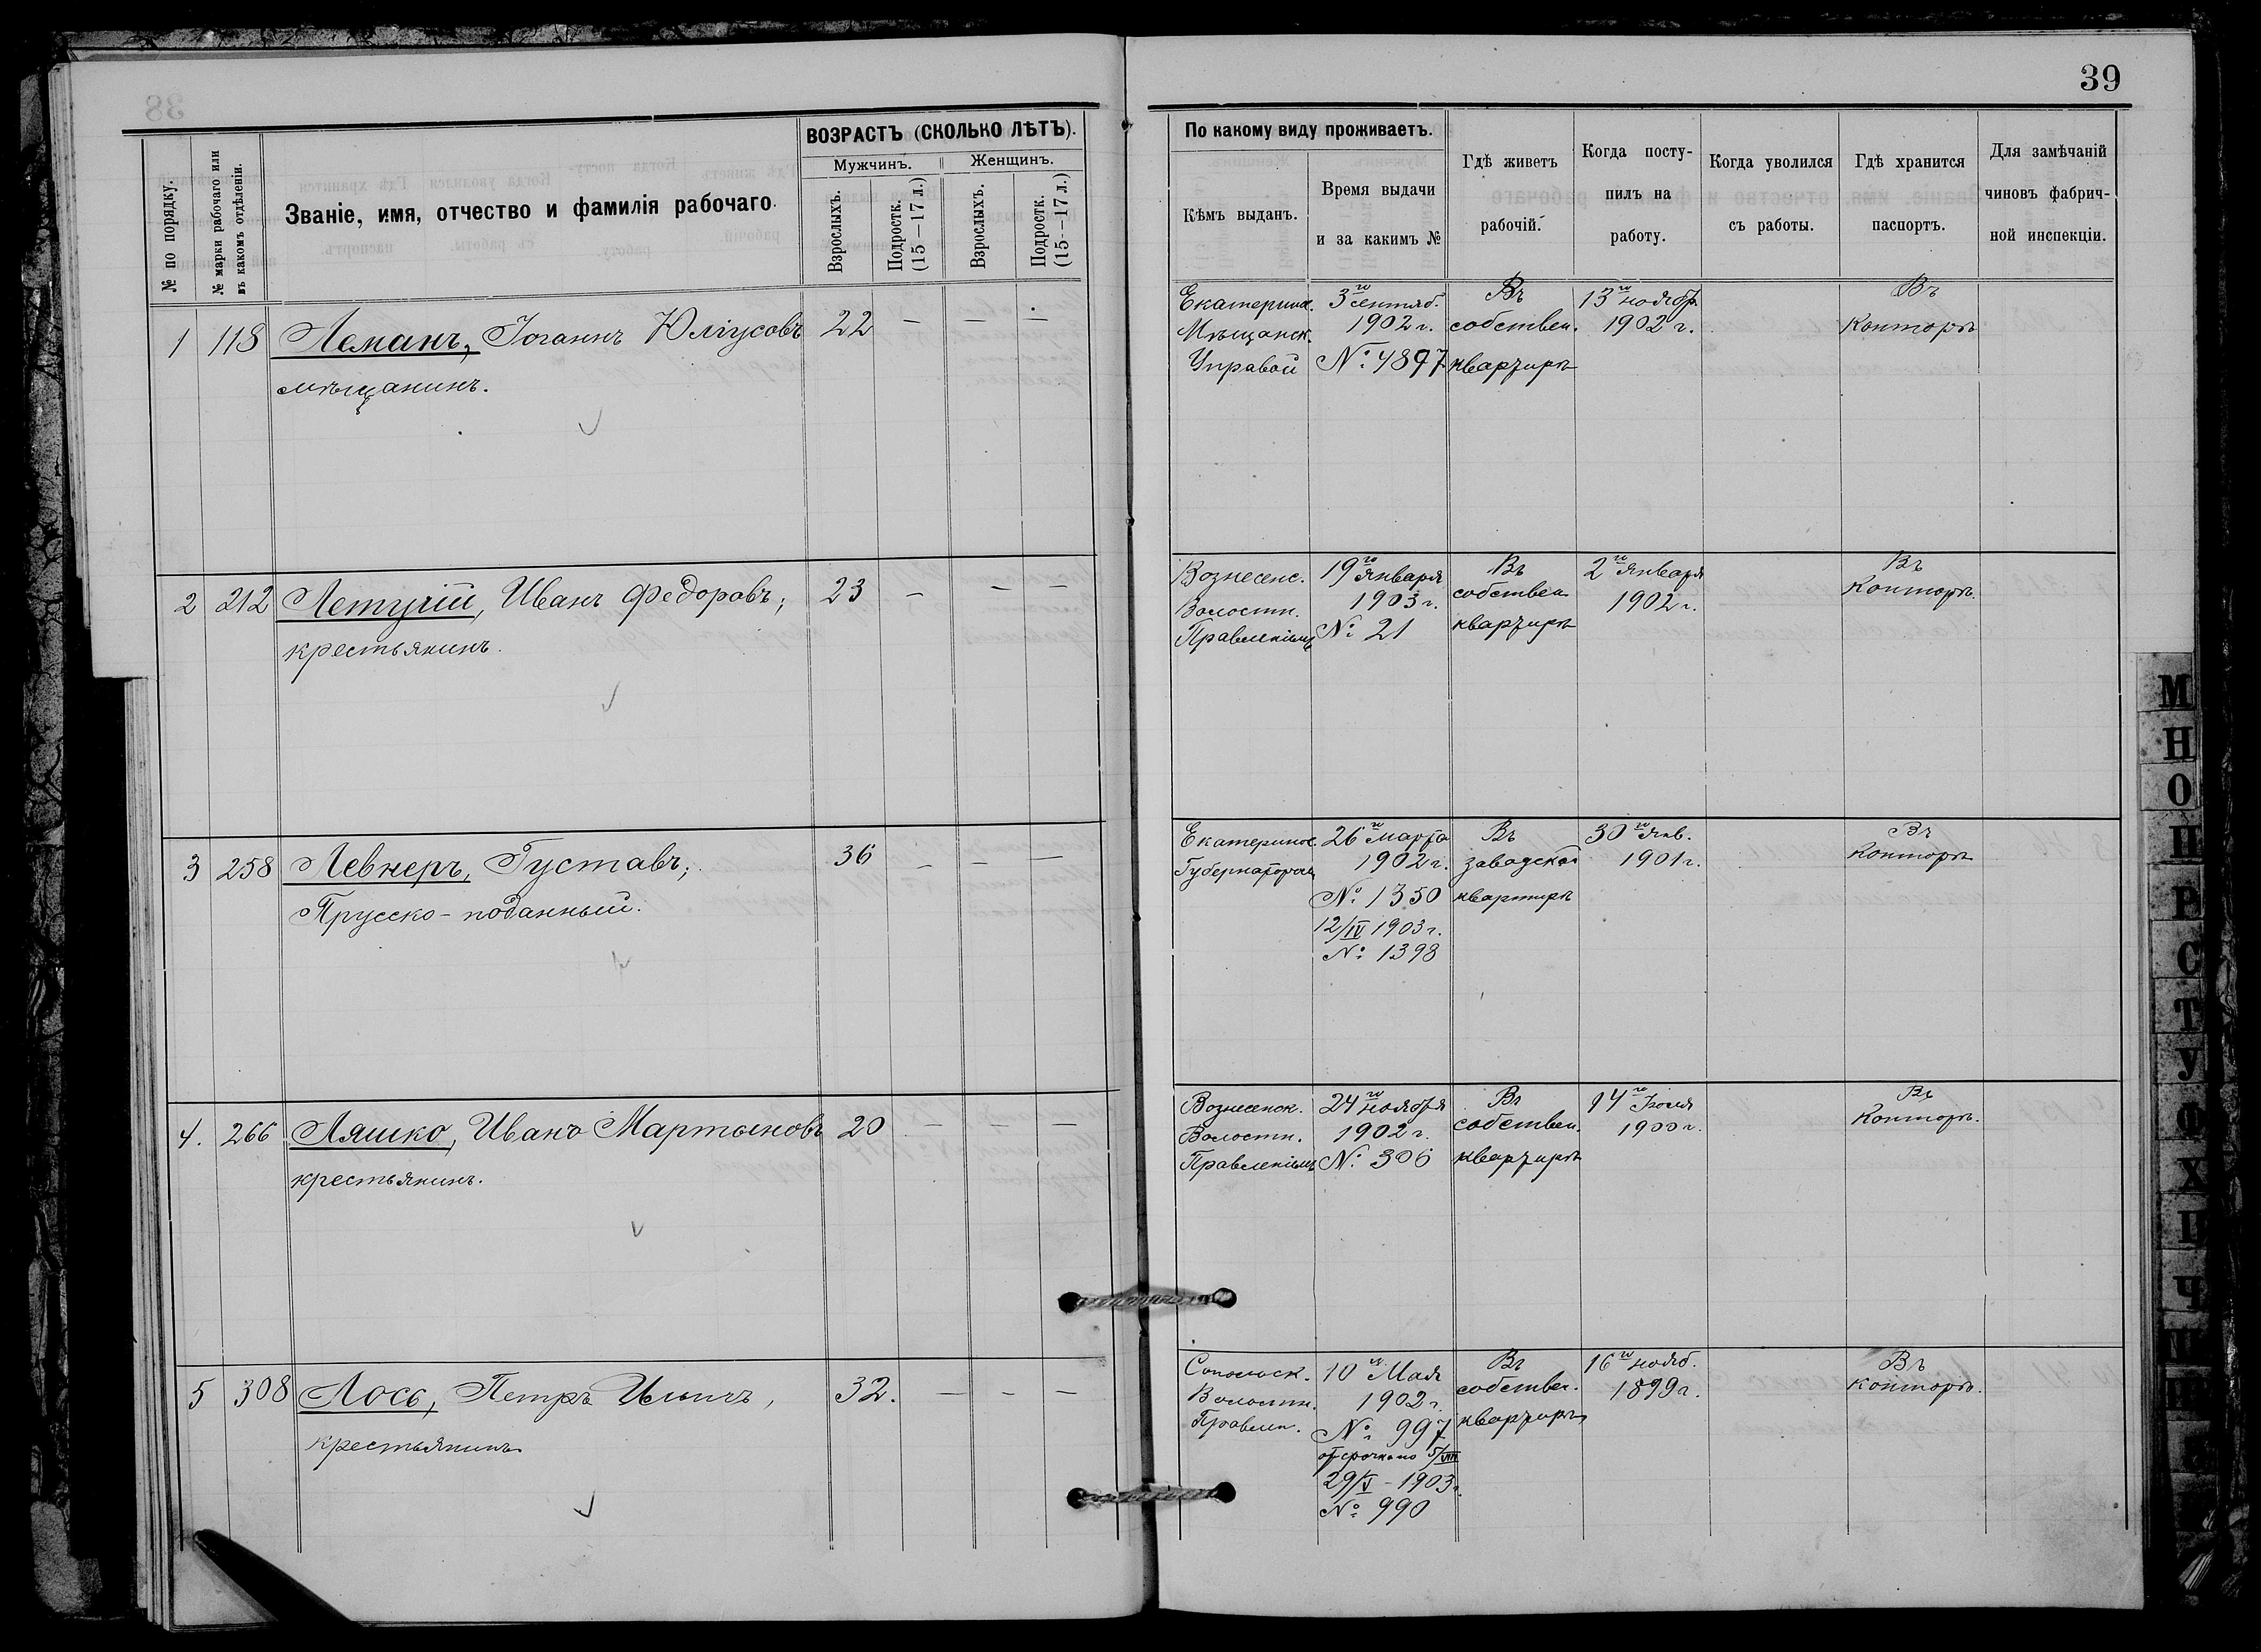 39
№ по порядку.
№ марки рабочаго или
въ какомъ отдѣленіи.
Званіе, имя, отчество и фамилія рабочаго.
ВОЗРАСТЪ (СКОЛЬКО ЛѢТЪ).
Мужчинъ.
Женщинъ.
Взрослыхъ.
Подростк.
(15—17 л.)
Взрослыхъ.
Подростк.
(15—17 л.)
По какому виду проживаетъ.
Кѣмъ выданъ.
Время выдачи
и за какимъ №
Гдѣ живетъ
рабочій.
Когда посту-
пилъ на
работу.
Когда уволился
съ работы.
Гдѣ хранится
паспортъ.
Для замѣчаній
чиновъ фабрич-
ной инспекціи.
1 118 Леманъ, Іоганнъ Юліусовъ 22 — — —
мѣщанинъ.
Екатерин.
Мѣщанск.
Управой
3го сентяб.
1902 г.
№ 4897
Въ
собствен.
квартирѣ
13го ноябр.
1902 г.
Въ
Конторѣ
2 212 Летучій, Иванъ Федоровъ; 23 — — —
крестьянинъ.
Вознесенс.
Волостн.
Правленіемъ
19го Января
1903 г.
№ 21
Въ
собствен.
квартирѣ
2го Января
1902 г.
Въ
Конторѣ.
3 258 Левнеръ, Густавъ; 36 — — —
Прусско-поданный.
Екатеринос.
Губернаторомъ
26го Марта
1902 г.
№ 1350
12/IV 1903 г.
№ 1398
Въ
заводской
квартирѣ
30го Янв.
1901 г.
Въ
Конторѣ
4. 266 Ляшко, Иванъ Мартыновъ 20 — — —
крестьянинъ.
Вознесенск.
Волостн.
Правленіемъ
24го ноября
1902 г.
№ 306
Въ
собствен.
квартирѣ
14го Іюля
1900 г.
Въ
Конторѣ.
5 308 Лось, Петръ Ильичъ, 32. — — —
крестьянинъ
Волостн.
Правлен.
10го Мая
1902 г.
№ 997
отсрочено 5/VIII
29/V - 1903 г.
№ 990
Въ
собствен.
квартирѣ
16го нояб.
1899 г.
Въ
конторѣ.
М
Н
О
П
Р
С
Т
У
Ф
Х
Ц
Ч